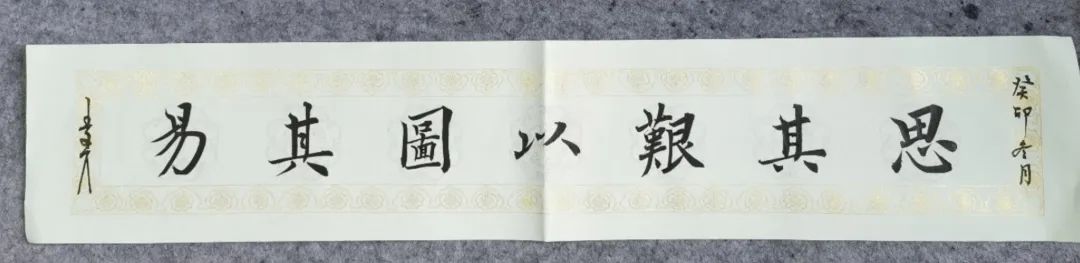 癸卯冬月
思其艱以圖其易